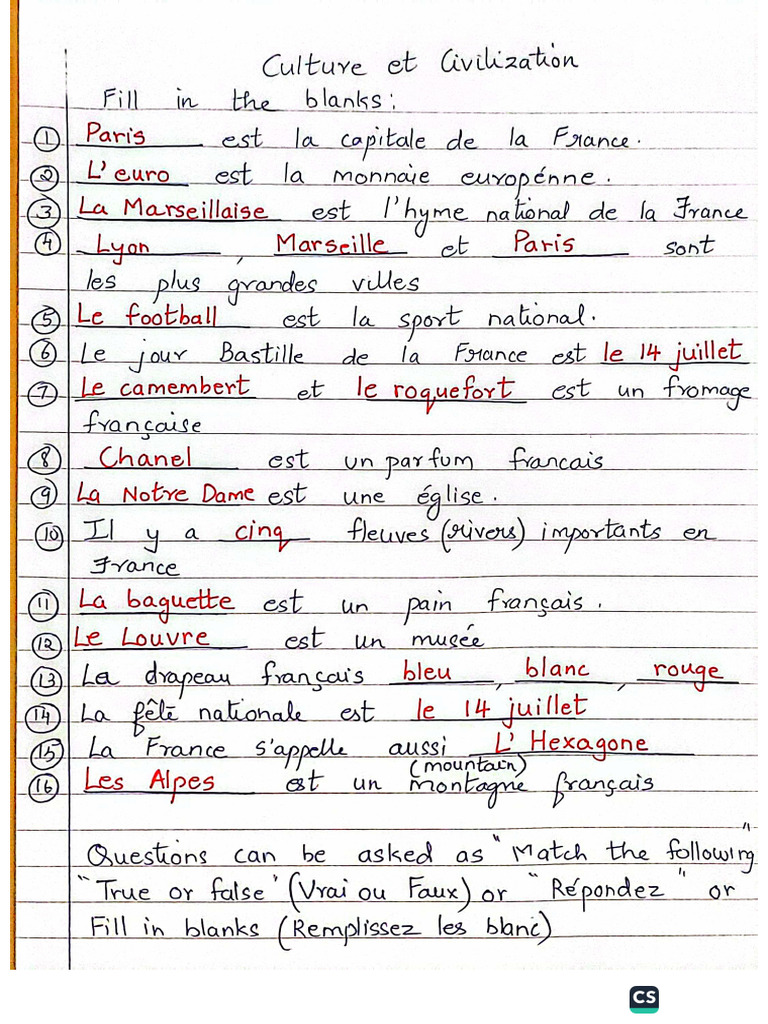 Culture et Civilization
Fill in the blanks:
① Paris est la capitale de la France.
② L'euro est la monnaie europénne.
③ La Marseillaise est l'hyme national de la France
④ Lyon, Marseille et Paris sont
les plus grandes villes
⑤ Le football est la sport national.
⑥ Le jour Bastille de la France est le 14 juillet
⑦ Le camembert et le roquefort est un fromage
française
⑧ Chanel est un parfum francais
⑨ La Notre Dame est une église.
⑩ Il y a cinq fleuves (rivers) importants en
France
⑪ La baguette est un pain français.
⑫ Le Louvre est un musée
⑬ Le drapeau français bleu, blanc, rouge
⑭ La fête nationale est le 14 juillet
⑮ La France s'appelle aussi L'Hexagone
(mountain)
⑯ Les Alpes est un montagne français
Questions can be asked as "Match the following"
"True or false" (Vrai ou Faux) or "Répondez" or
Fill in blanks (Remplissez les blanc)
CS